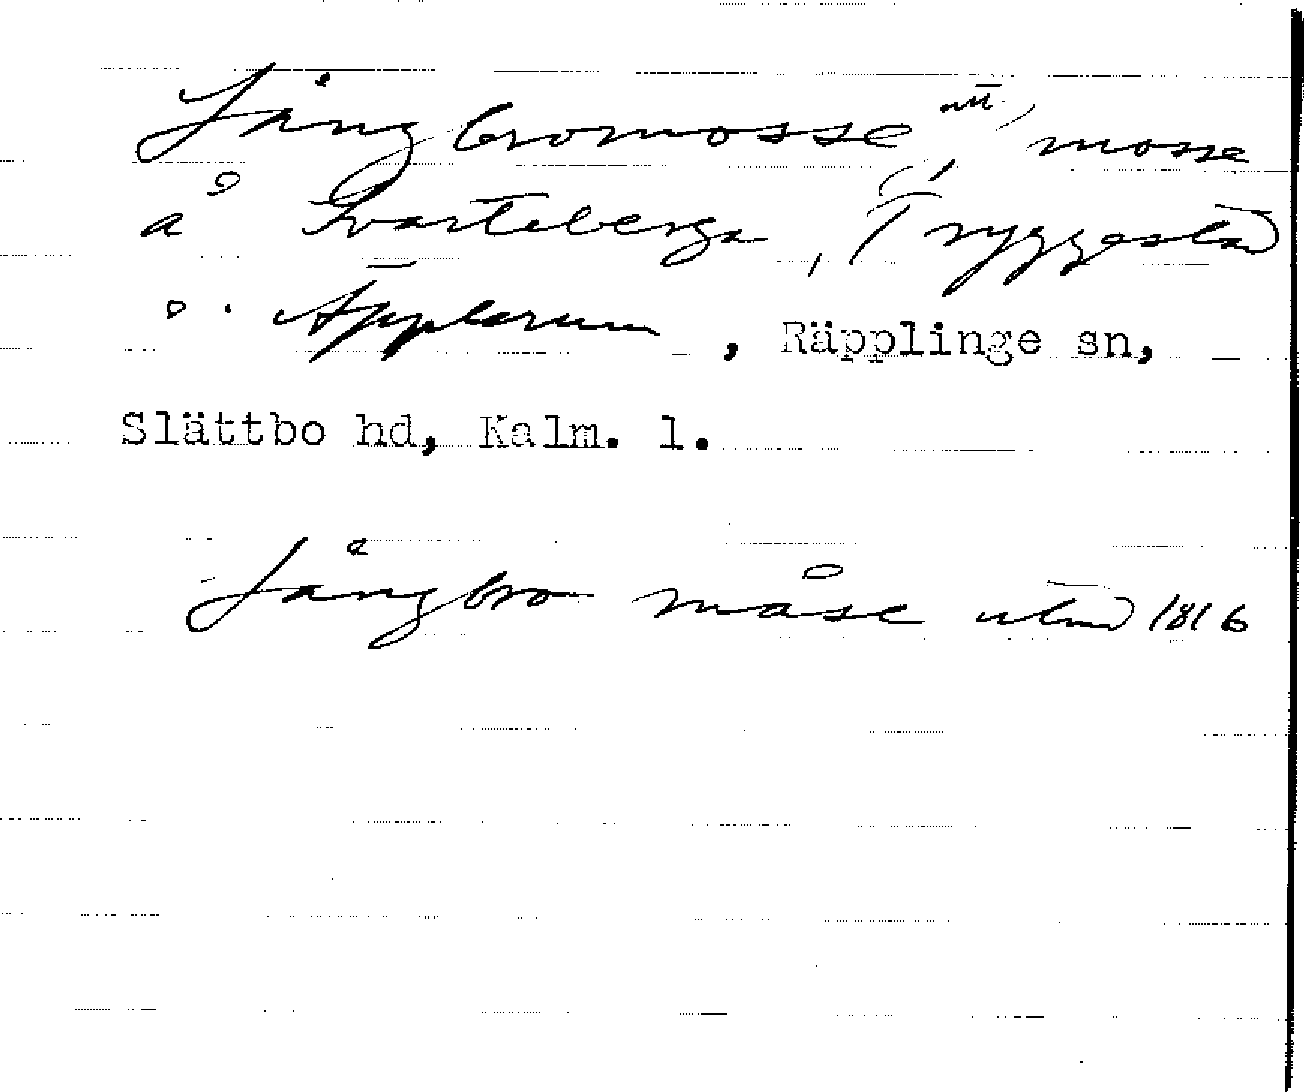 Långbromosse, mosse
å Svarteberga, Tryggestad
o. Äpplerum, Räpplinge sn,
Slättbo hd, Kalm. l.
Långbro måse utm 1816